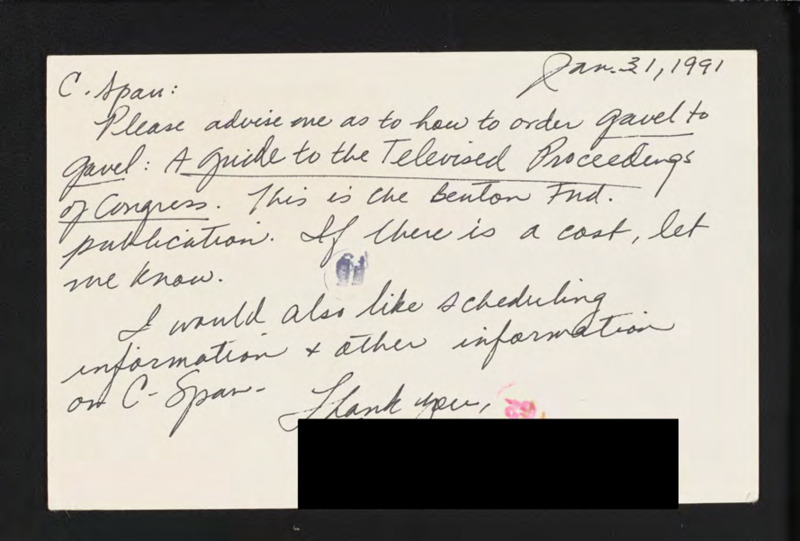 Jan. 31, 1991
C. Span:
Please advise me as to how to order Gavel to
Gavel: A Guide to the Televised Proceedings
of Congress. This is the Benton Fnd.
publication. If there is a cost, let
me know.
I would also like scheduling
information + other information
on C-Span-
Thank you,